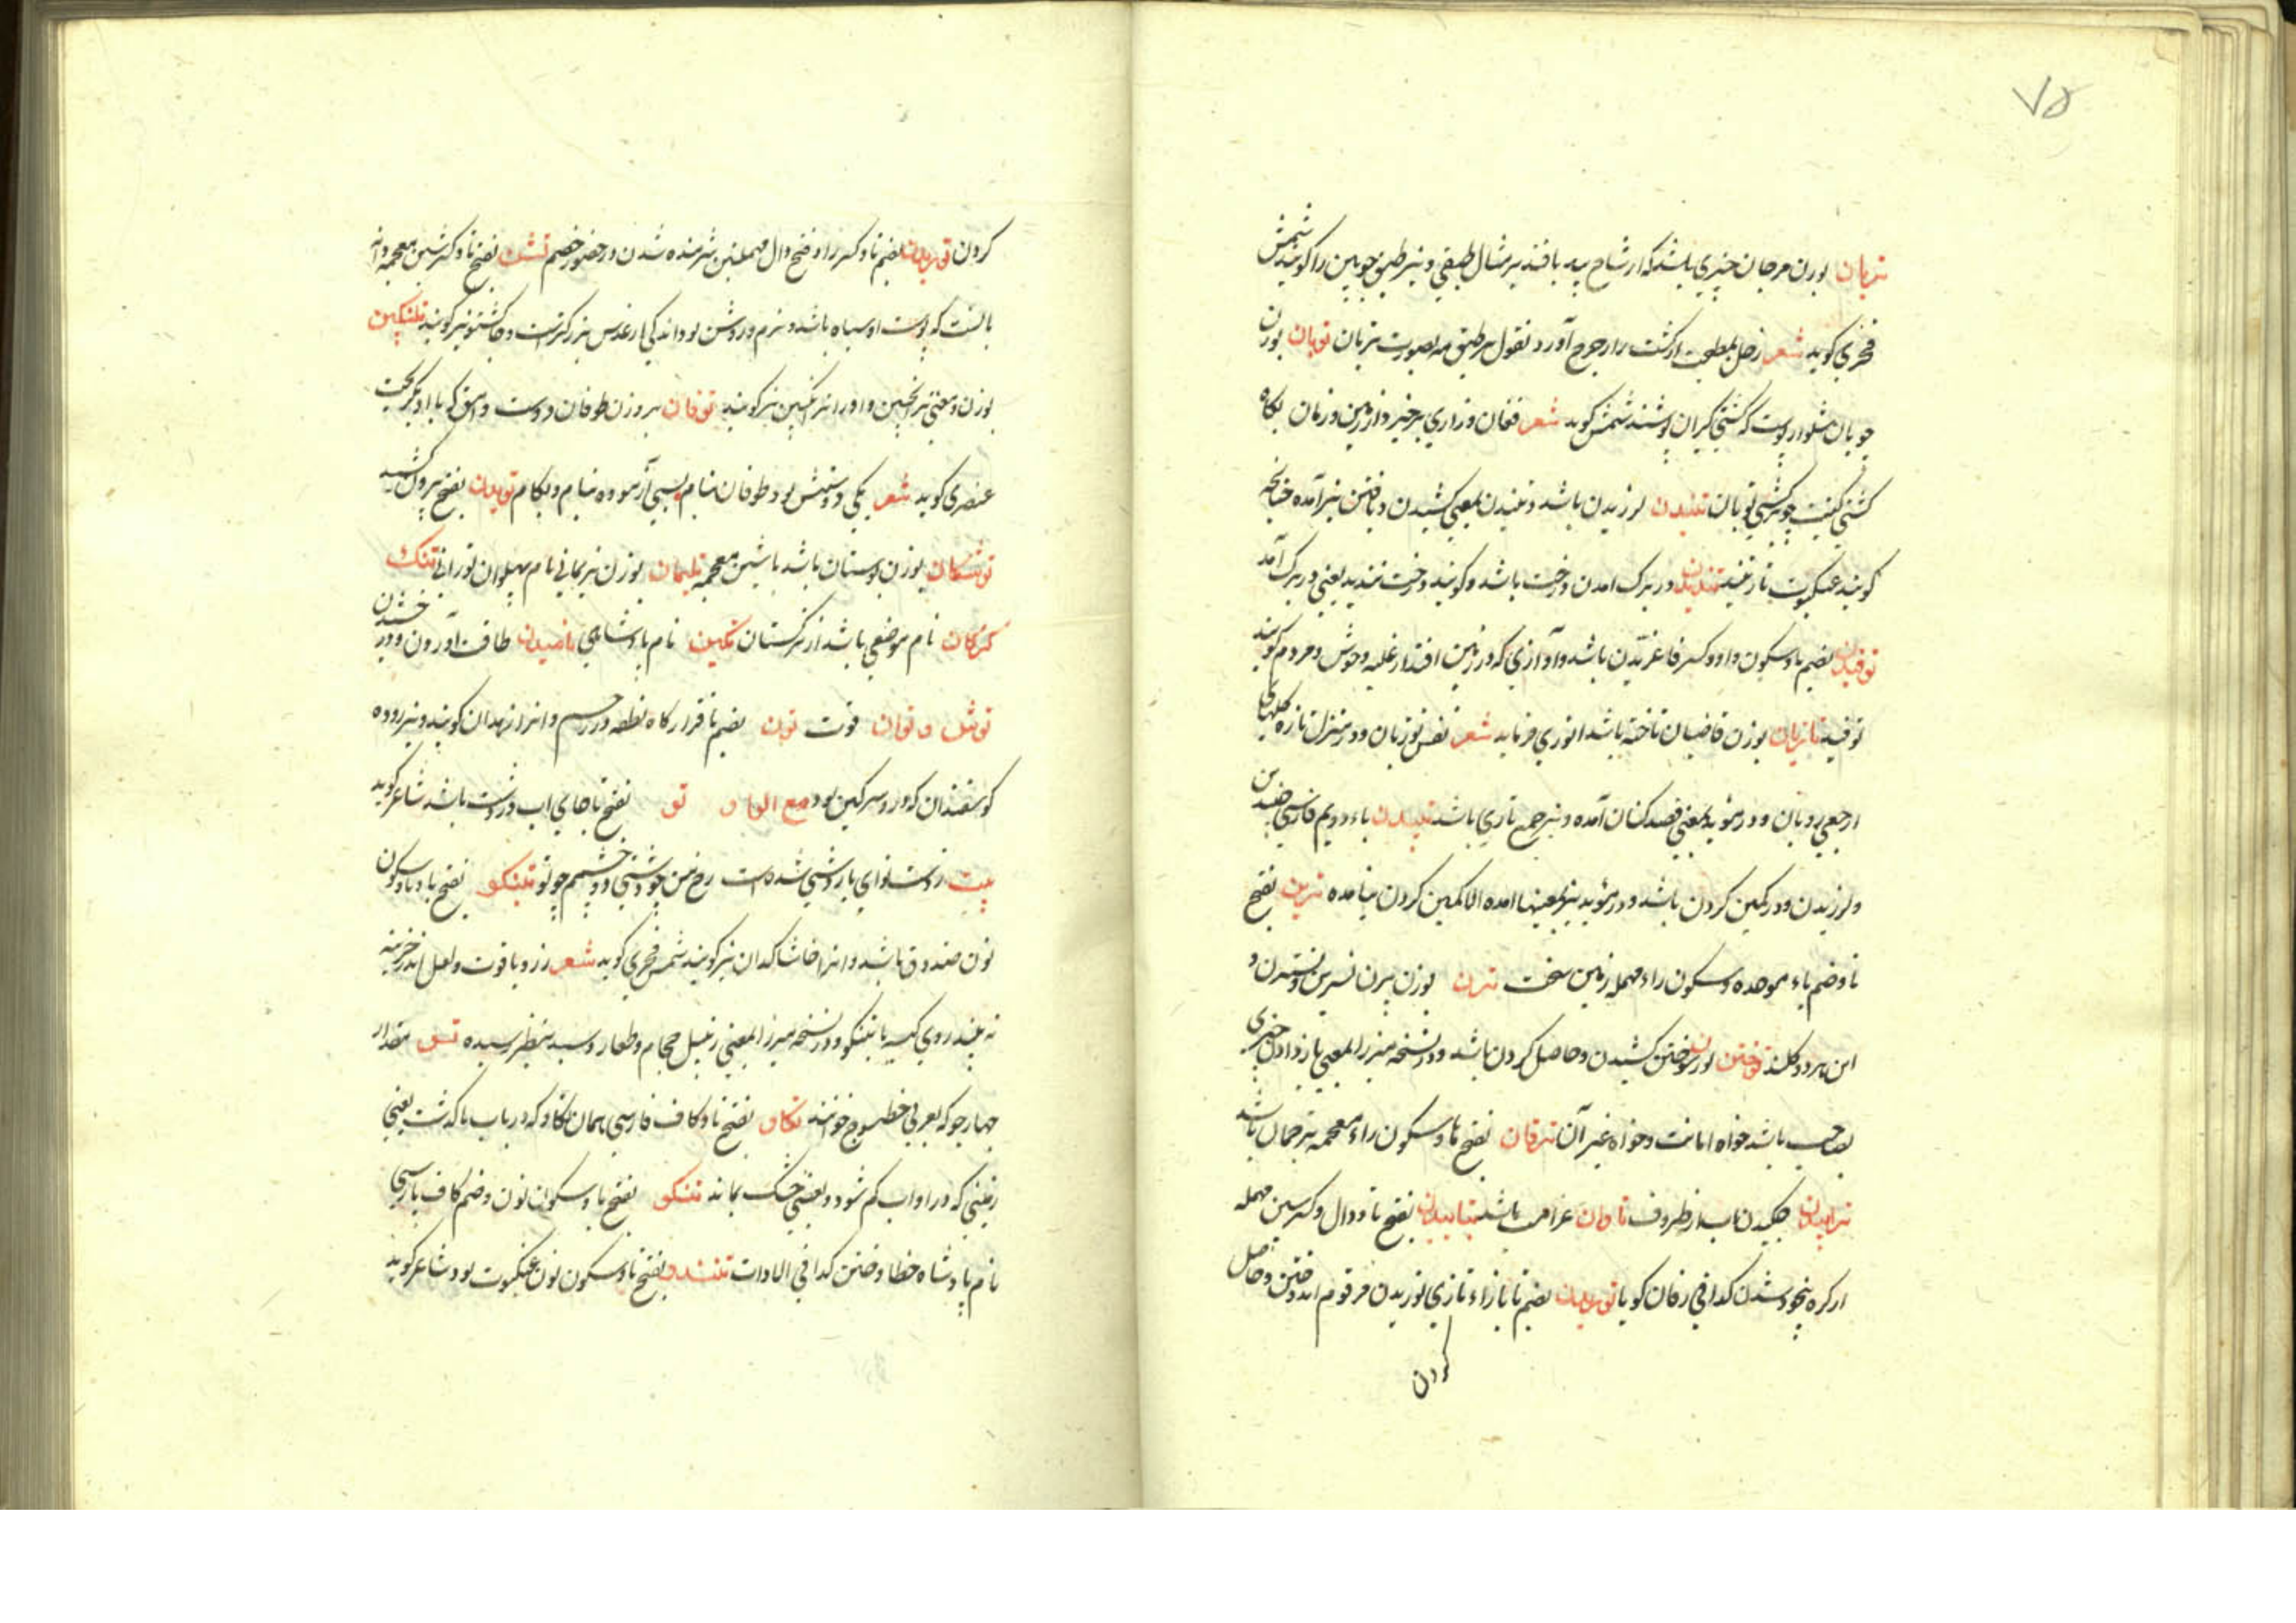 ۷۵
تریان بوزن مرجان چیزی باشد که از شاخ بید بافند بر مثال طبقی و نیز طبق چوبین را گویند شمس
فخری گوید شعر زحل بمطبخت ار کشت را رجوح آورد نقول بر طبق مه بصورت تریان توبان بوزن
چوبان شلواریست که کشتی گیران پوشند شمس گوید شعر فغان و زاری برخیزد از زمین و زمان بگاه
کشتی کینت چو برکشی توبان تنیدن لرزیدن باشد و تنیدن بمعنی کشیدن و بافتن نیز آمده چنانچه
گویند عنکبوت تار تنید تندیدن در برک امدن درخت باشد و گویند درخت تندید یعنی در برک آمد
توفیدن بضم تا و سکون واو و کسر فا غریدن باشد و آوازی که در زمین افتد از غلبه وحوش و مردم گویند
توفید تازیان بوزن قاضیان تاخته باشد انوری فرماید شعر نفس تو زبان و در منزل تازه گلهای
ارجعی رو تان و در مؤید بمعنی قصد کنان آمده و نیز جمع تازی باشد تپیدن باء دویم فارسی جنبیدن
و لرزیدن و در کمین کردن باشد و در مؤید نیز بمعنیها امده الا کمین کردن نیامده تربن بفتح
تا و ضم باء موحده و سکون راء مهمله زمین سخت ترن بوزن پرن نسرین و نسترن و
این هر دو گلند توختن بوزن سوختن کشیدن و حاصل کردن باشد و در نسخه میرزا بمعنی باز دادن چیزی
بصاحب باشد خواه امانت و خواه غیر آن ترفان بفتح تا و سکون راء معجمه ترجمان باشد
ترابیدن چکیدن اب از ظروف تاوان غرامت باشد تباسیدن بفتح تا و دال و کسر سین مهمله
از گره بیخود شدن کذا فی زفان گویا توزیدن بضم تا با زاء تازی لوزیدن مرقوم اندوختن و حاصل
کردن
کردن توریدن بضم تا و کسر را و فتح دال مهملتین شرمنده شدن در حضور خصم تشن بفتح تا و کسر شین معجمه دانه
بالنست که پوست او سیاه باشد و نرم و روشن بود اندکی از عدس بزرکتر است و چاکشو نیز گویند تلنکبین
بوزن و معنی ترنجبین و اورا ترانکبین نیز گویند توفان بروزن طوفان دوست و انیق که با او یکبخت
عنصری گوید شعر یکی دوستش بود طوفان بنام بسی آزموده بنام و بکام تویدن بفتح بیرون کشید
توشکان بوزن بوستان باشد با شین معجمه تلیمان بوزن نریمانی نام پهلوان تورانی تنک
کرکان نام موضعی باشد از ترکستان تکین نام پادشاهی تاضیدن طاقت آوردن و در خشدن
توش و توان قوت تون بضم تا قرارکاه نطفه در رحم و انرا زهدان گویند و نیز روده
گوسفندان که در و سرکین بود مع الواو تو بفتح تا جای اب در دشت باشد شاعر گوید
بیت زدست نوای یار دشتی شده است رخ من چو دشتی و دو چشمم چو تو تبنکو بفتح تا و با و سکون
نون صندوق باشد و انرا خاشاکدان نیز گویند شمس فخری گوید شعر زر و یاقوت و لعل اندر خزینه
نه بیند روی کیسه یا تبنکو و در نسخه میرزا بمعنی زنبیل حجام و طعار و سبد بنظر رسیده تسو مقدار
چهار جو که بعربی طسوج خوانند تکاو بفتح تا و کاف فارسی همان تکاو که در باب با گذشت یعنی
زمینی که در او اب کم شود و بعضی خشک بماند تنکو بفتح تا و سکون نون و ضم کاف پارسی
نام پادشاه خطا و ختن کذا فی الادات تنندو بفتح تا و سکون نون عنکبوت بود شاعر گوید